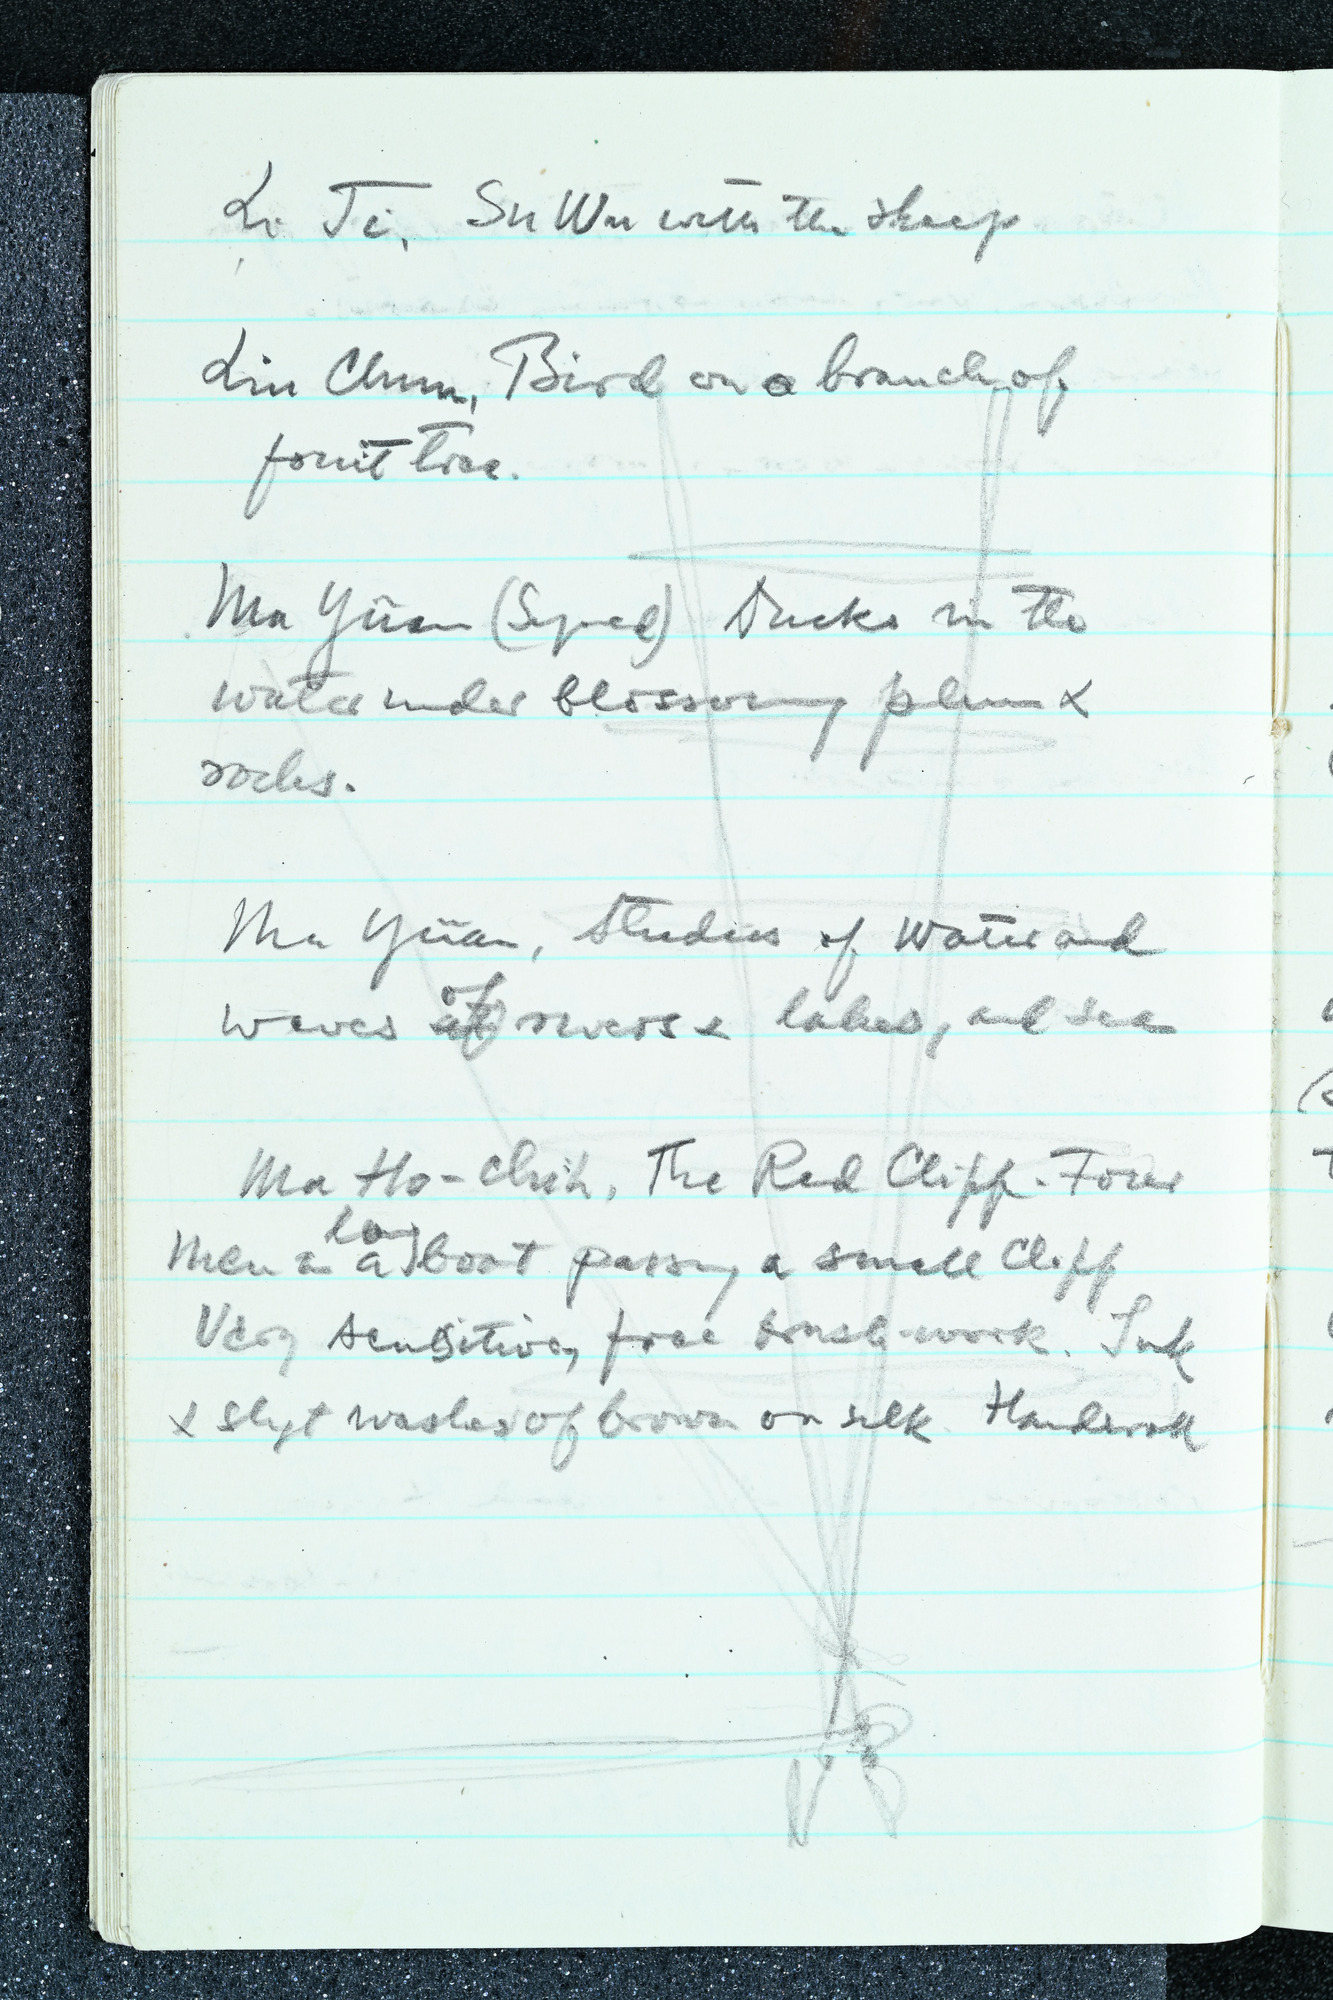 Li Ti, Su Wu with the sheep
Lin Chun, Bird on a branch of
fruit tree.
Ma Yüan (Signed) Ducks in the
water under blossoming plum &
rocks.
Ma Yüan, Studies of Water and
waves of rivers & lakes, and sea
Ma Ho-chih, The Red Cliff. Four
long
Men in a boat passing a small Cliff
Very sensitive, free brush-work. Ink
& sligt washes of brown on silk. Handscroll